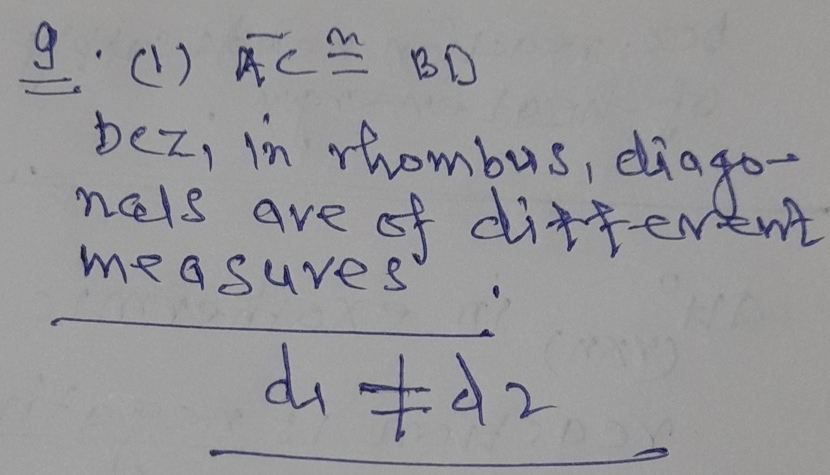 9. (1) A̅C ≅ BD
bcz, in rhombus, diago-
nals are of different
measures.
d1 ≠ d2